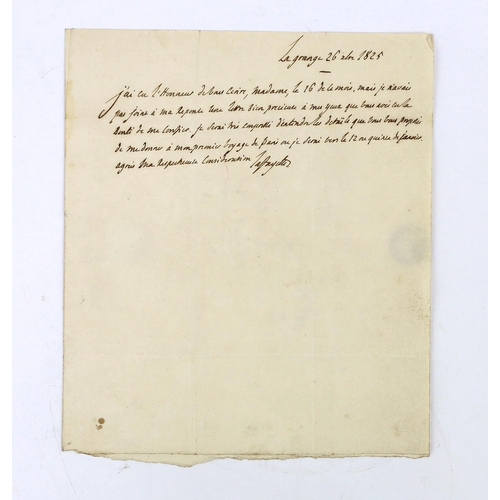 La grange 26 xbre 1825
j'ai eu l'honneur de vous ecrire, Madame, le 16 de ce mois, mais je n'avais
pas joint à ma reponse une lettre bien precieuse à mes yeux que vous avés eu la
bonté de me confier. je serai très empressé d'entendre les details que vous vous proposés
de me donner à mon premier voyage de Paris ou je serai vers le 12 ou quinze de janvier.
agrées ma respectueuse consideration Lafayette